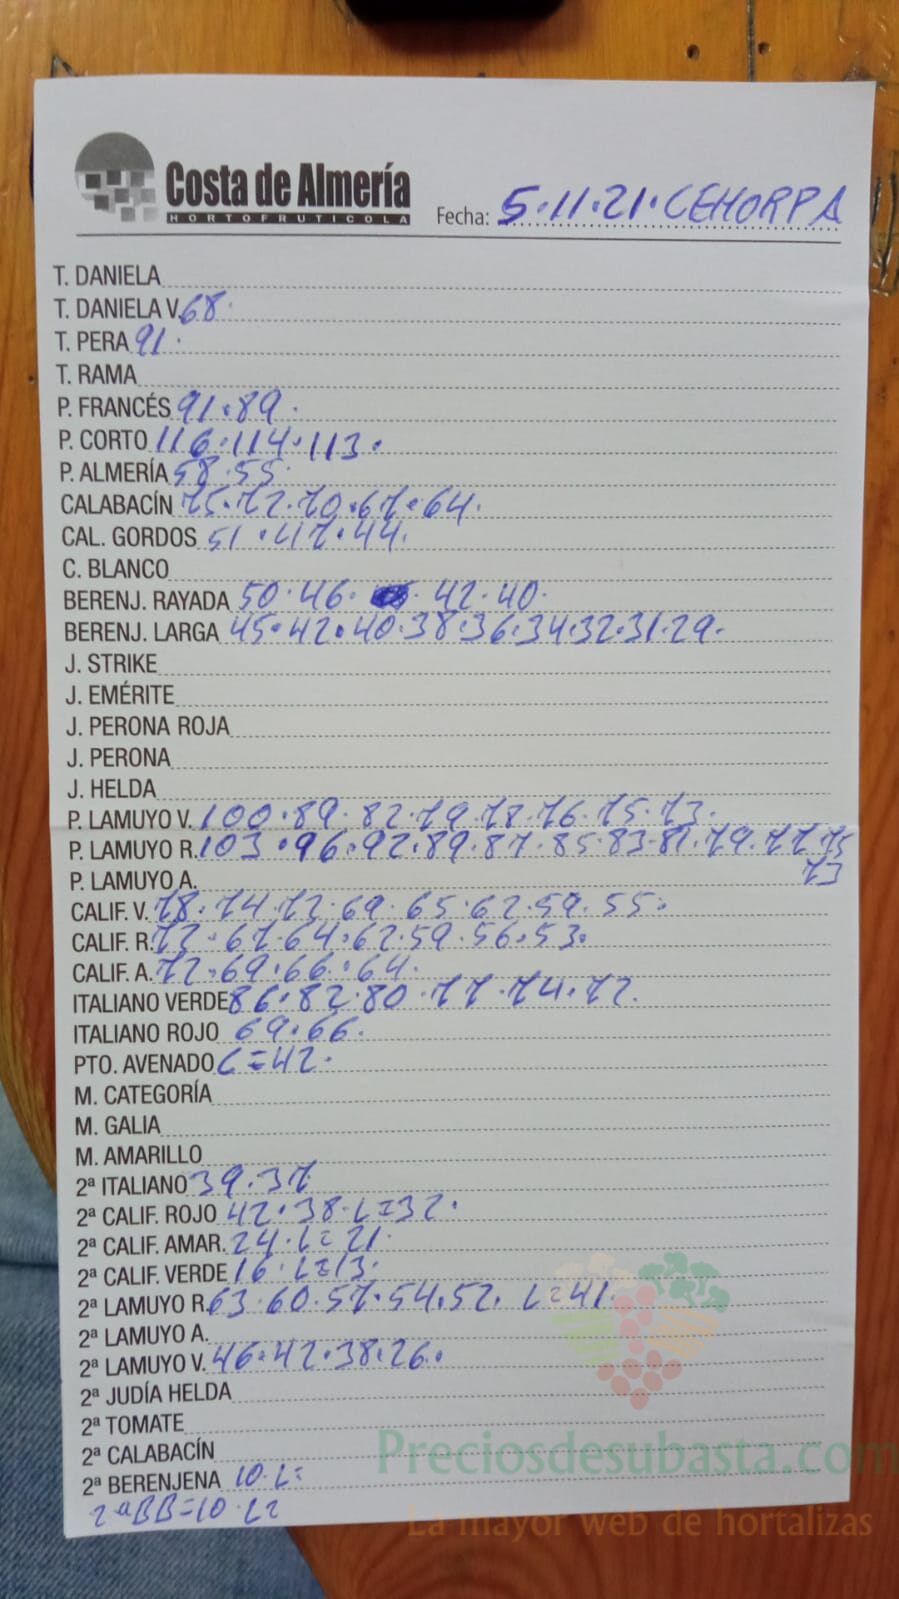 Costa de Almería
HORTOFRUTICOLA
Fecha: 5·11·21·CEHORPA
T. DANIELA
T. DANIELA V. 68·
T. PERA 91·
T. RAMA
P. FRANCÉS 91·89·
P. CORTO 116·114·113·
P. ALMERÍA 58·55·
CALABACÍN 75·72·70·67·64·
CAL. GORDOS 51·47·44·
C. BLANCO
BERENJ. RAYADA 50·46· 42·40·
BERENJ. LARGA 45·42·40·38·36·34·32·31·29·
J. STRIKE
J. EMÉRITE
J. PERONA ROJA
J. PERONA
J. HELDA
P. LAMUYO V. 100·89·82·79·78·76·75·73·
P. LAMUYO R. 103·96·92·89·87·85·83·81·79·77·75
73
P. LAMUYO A.
CALIF. V. 78·74·72·69·65·62·59·55·
CALIF. R. 72·67·64·62·59·56·53·
CALIF. A. 72·69·66·64·
ITALIANO VERDE 86·82·80·77·74·72·
ITALIANO ROJO 69·66·
PTO. AVENADO C=42·
M. CATEGORÍA
M. GALIA
M. AMARILLO
2ª ITALIANO 39·37
2ª CALIF. ROJO 42·38·L=32·
2ª CALIF. AMAR. 24·L=21·
2ª CALIF. VERDE 16·L=13·
2ª LAMUYO R. 63·60·57·54·52· L=41·
2ª LAMUYO A.
2ª LAMUYO V. 46·42·38·26·
2ª JUDÍA HELDA
2ª TOMATE
2ª CALABACÍN
2ª BERENJENA 10·L=
2ªBB=10·L=
Preciosdesubasta.com
La mayor web de hortalizas